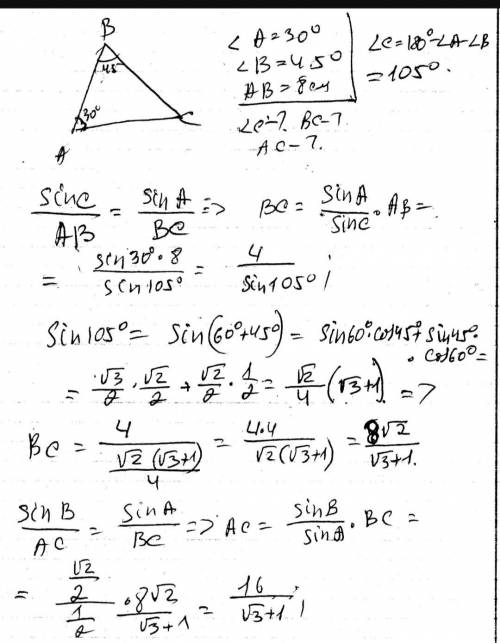 B
45
30°
A
C
∠A=30°
∠B=45°
AB=8см
∠C-? BC-?
AC-?
∠C=180°-∠A-∠B
=105°.
sinC/AB = sinA/BC => BC = sinA/sinC · AB =
= sin30°·8/sin105° = 4/sin105° ;
Sin105° = Sin(60°+45°) = Sin60°·cos45°+Sin45°·
· cos60° =
= √3/2 · √2/2 + √2/2 · 1/2 = √2/4 (√3+1) =>
BC = 4/(√2(√3+1)/4) = 4·4/√2(√3+1) = 8√2/√3+1.
sinB/AC = sinA/BC => AC = sinB/sinA · BC =
= (√2/2)/(1/2) · 8√2/√3+1 = 16/√3+1 ;